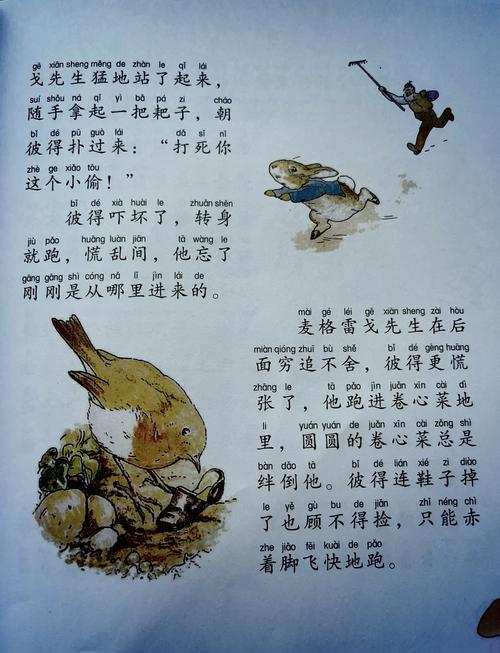 gē xiān sheng měng de zhàn le qǐ lái
戈先生猛地站了起来，
suí shǒu ná qǐ yì bǎ pá zi cháo
随手拿起一把耙子，朝
bǐ dé pū guò lái dǎ sǐ nǐ
彼得扑过来：“打死你
zhè ge xiǎo tōu
这个小偷！”
bǐ dé xià huài le zhuǎn shēn
彼得吓坏了，转身
jiù pǎo huāng luàn jiān tā wàng le
就跑，慌乱间，他忘了
gāng gāng shì cóng nǎ lǐ jìn lái de
刚刚是从哪里进来的。
mài gé léi gē xiān sheng zài hòu
麦格雷戈先生在后
miàn qióng zhuī bù shě bǐ dé gèng huāng
面穷追不舍，彼得更慌
zhāng le tā pǎo jìn juǎn xīn cài dì
张了，他跑进卷心菜地
li yuán yuán de juǎn xīn cài zǒng shì
里，圆圆的卷心菜总是
bàn dǎo tā bǐ dé lián xié zi diào
绊倒他。彼得连鞋子掉
le yě gù bu de jiǎn zhǐ néng chì
了也顾不得捡，只能赤
zhe jiǎo fēi kuài de pǎo
着脚飞快地跑。